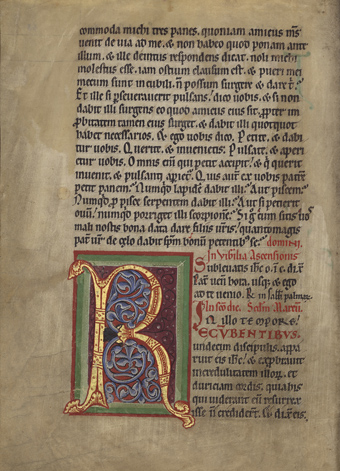 commoda michi tres panes. quoniam amicus m̄s
venit de via ad me. & non habeo quod ponam ante
illum. & ille deintus respondens dicat. noli michi
molestus esse. iam ostium clausum est. & pueri mei
mecum sunt in cubili. n̄ possum surgere & dare t̄.
Et ille si p̄severaverit pulsans. dico vobis. & si non
dabit illi surgens eo quod amicus eius sit. propter im
p̄bitatem tamen eius surget. & dabit illi quotquot
habet necessarios. & ego vobis dico. Petite. & dabi
tur vobis. Querite. & invenietis. Pulsate. & aperi
etur vobis. Omnis eni qui petit accipit. & q̄ querit
invenit. & pulsanti aperiet. Quis aut̄ ex vobis patrē
petit panem. Numq̄d lapidē dabit illi. Aut piscem.
Numq̄d p̄ pisce serpentem dabit illi. Aut si petierit
ovū. numq̄d porriget illi scorpionē. Si g̊ cum sitis vos
mali nostis bona data dare filiis vr̄is. quantomagis
pat̄ vr̄ de celo dabit sp̄m bonū petentib; se.
In Vigilia Ascensionis
Sublevatis ih̄c
Pat̄ venit hora. usq; & ego
ad te venio.
Sedm̄ Marcū.
IN illo TEMPORE.
RECUMBENTIBUS
undecim discipulis. appa
ruit eis ih̄c. & exp̄bravit
incredulitatem illoꝝ. &
duriciam cordis. quia his
qui viderant eū resurrex
isse n̄ crediderт̄. & dix̄ eis.